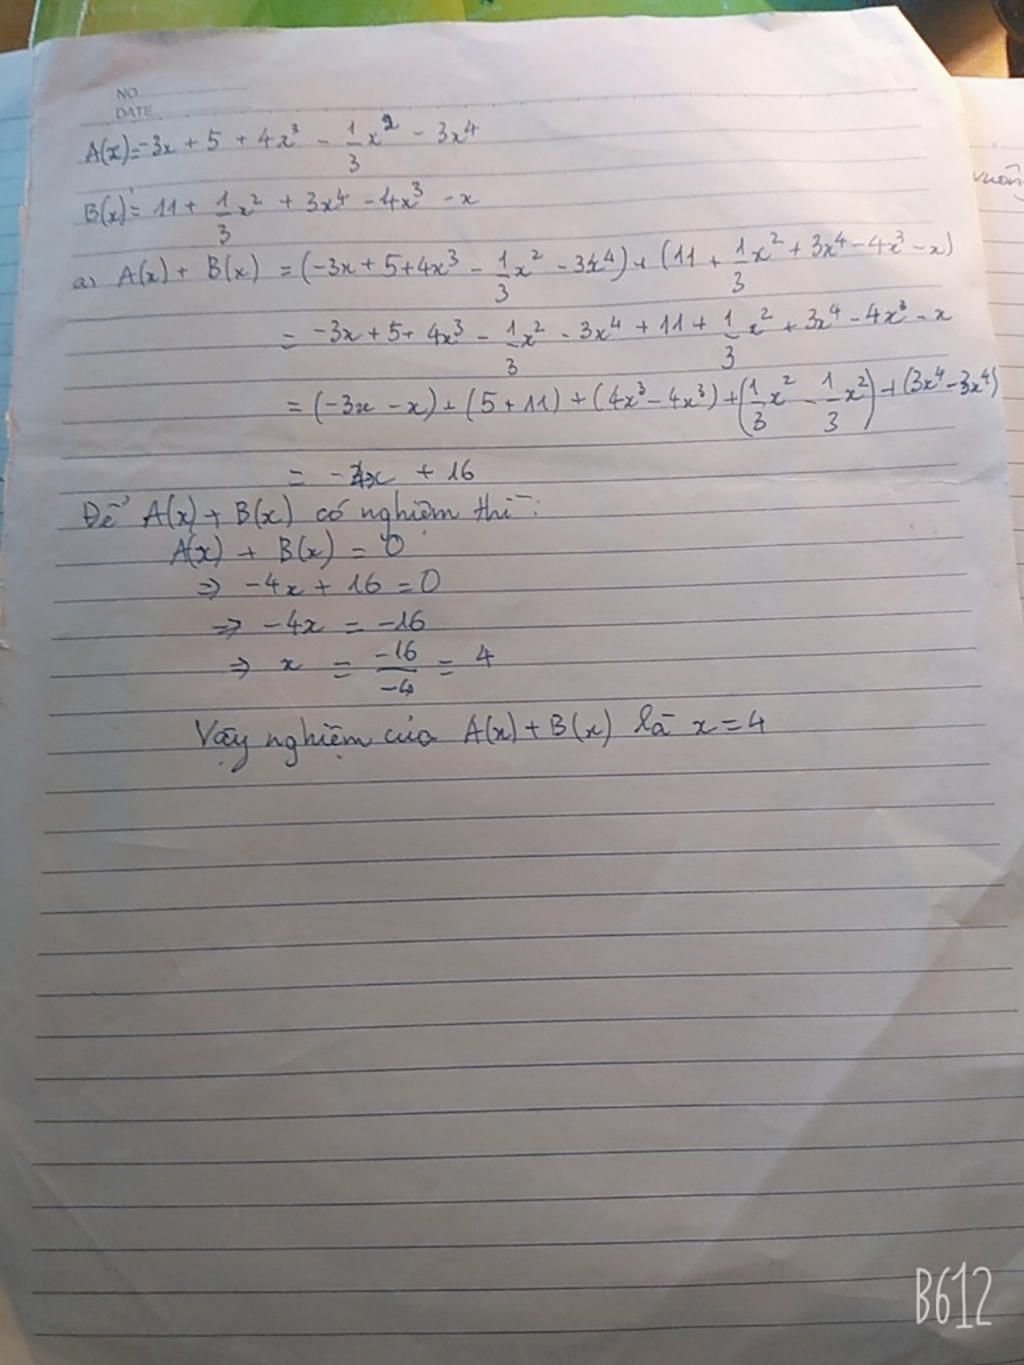 NO.
DATE
A(x)=-3x + 5 + 4x³ - 1/3 x² - 3x⁴
B(x) = 11 + 1/3 x² + 3x⁴ - 4x³ - x
a) A(x) + B(x) = (-3x + 5 + 4x³ - 1/3 x² - 3x⁴) + (11 + 1/3 x² + 3x⁴ - 4x³ - x)
= -3x + 5 + 4x³ - 1/3 x² - 3x⁴ + 11 + 1/3 x² + 3x⁴ - 4x³ - x
= (-3x - x) + (5 + 11) + (4x³ - 4x³) + (1/3 x² - 1/3 x²) + (3x⁴ - 3x⁴)
= -4x + 16
Để A(x) + B(x) có nghiệm thì:
A(x) + B(x) = 0
⇒ -4x + 16 = 0
⇒ -4x = -16
⇒ x = -16/-4 = 4
Vậy nghiệm của A(x) + B(x) là x = 4
B612